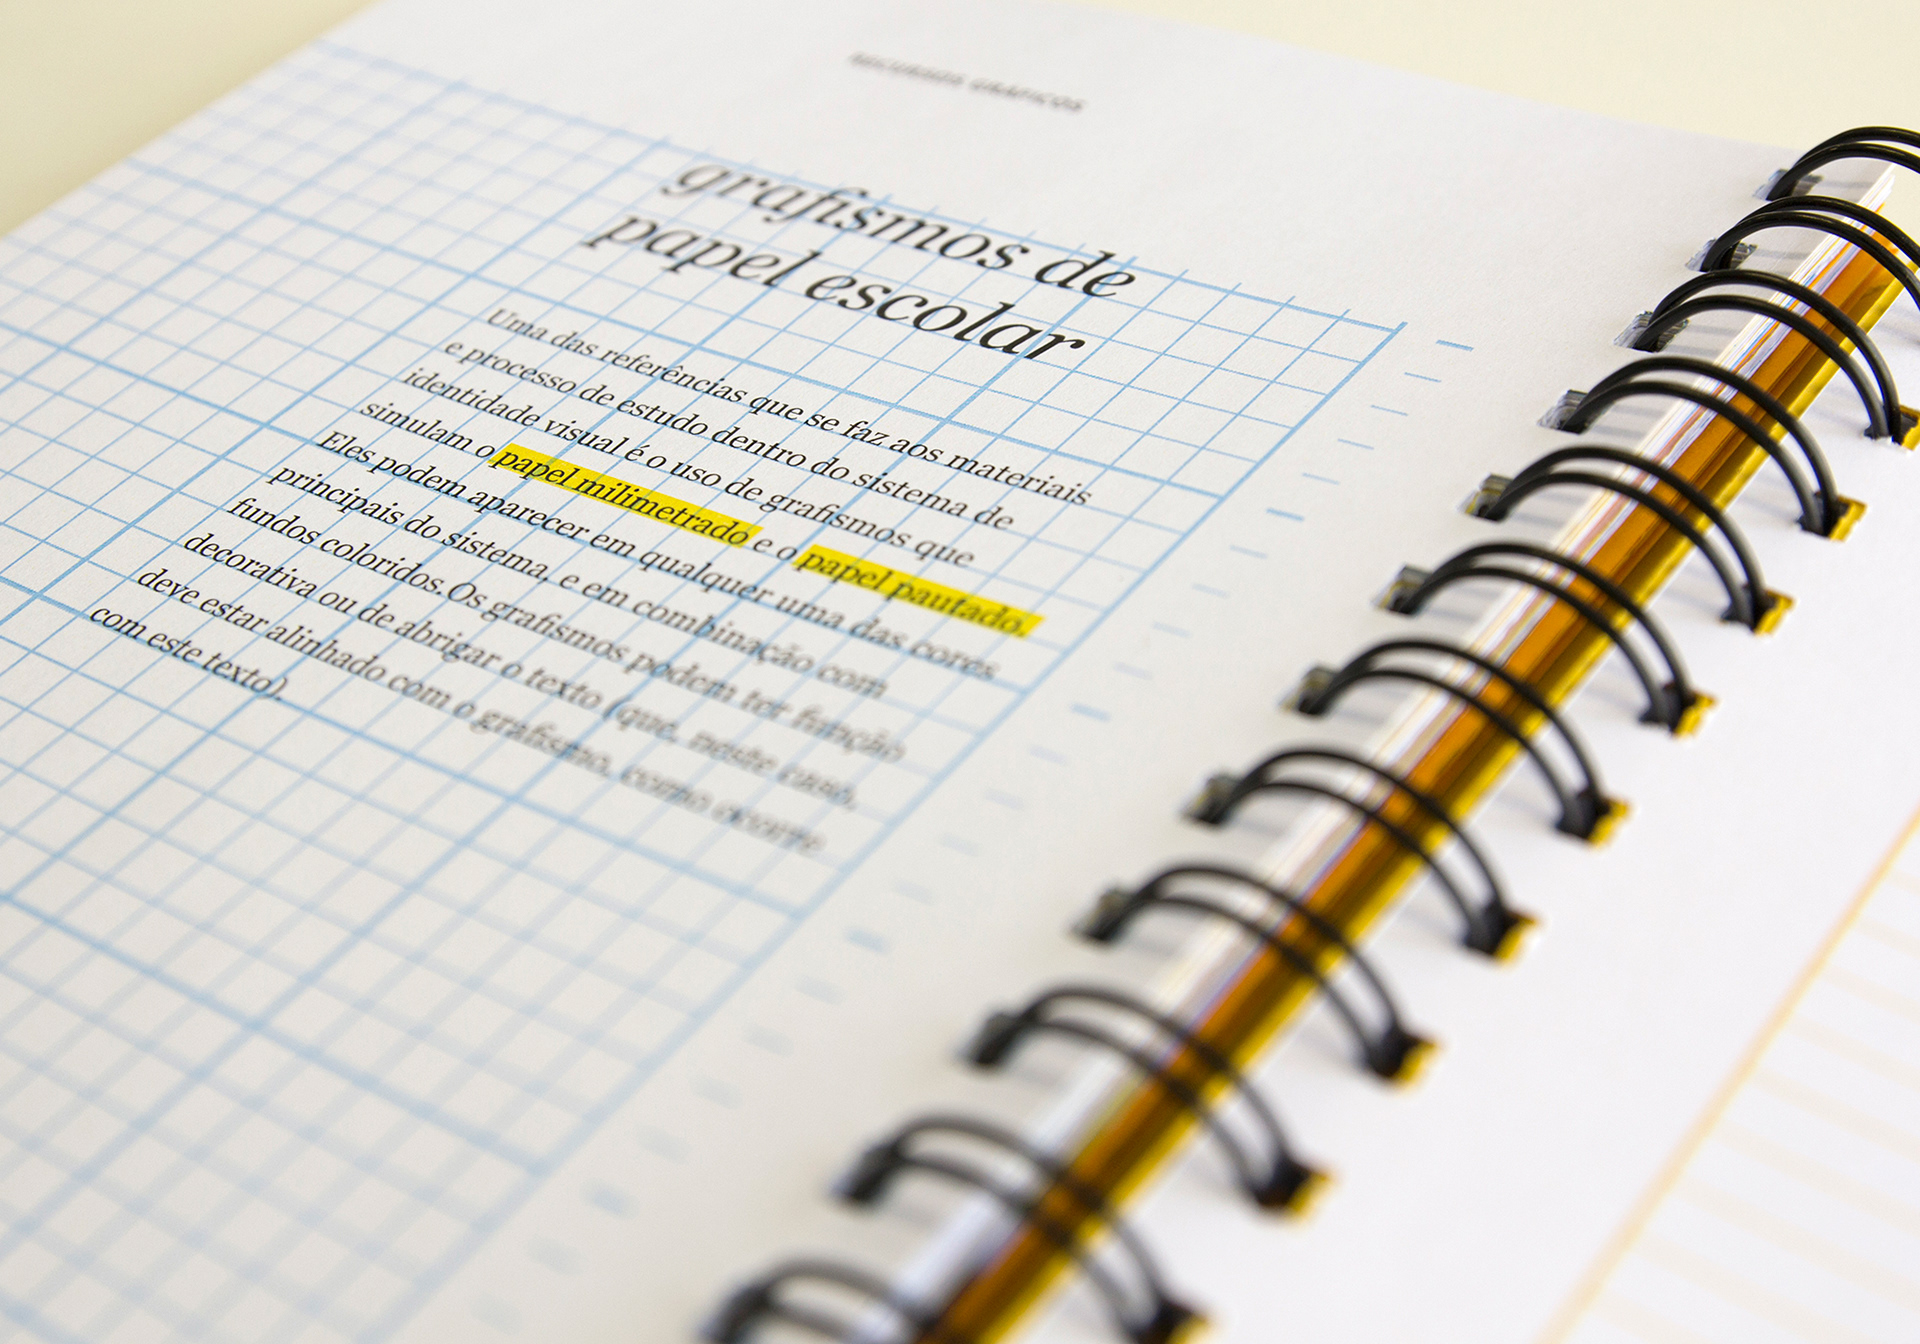 RECURSOS GRÁFICOS
grafismos de
papel escolar
Uma das referências que se faz aos materiais
e processo de estudo dentro do sistema de
identidade visual é o uso de grafismos que
simulam o papel milimetrado e o papel pautado.
Eles podem aparecer em qualquer uma das cores
principais do sistema, e em combinação com
fundos coloridos. Os grafismos podem ter função
decorativa ou de abrigar o texto (que, neste caso,
deve estar alinhado com o grafismo, como ocorre
com este texto).